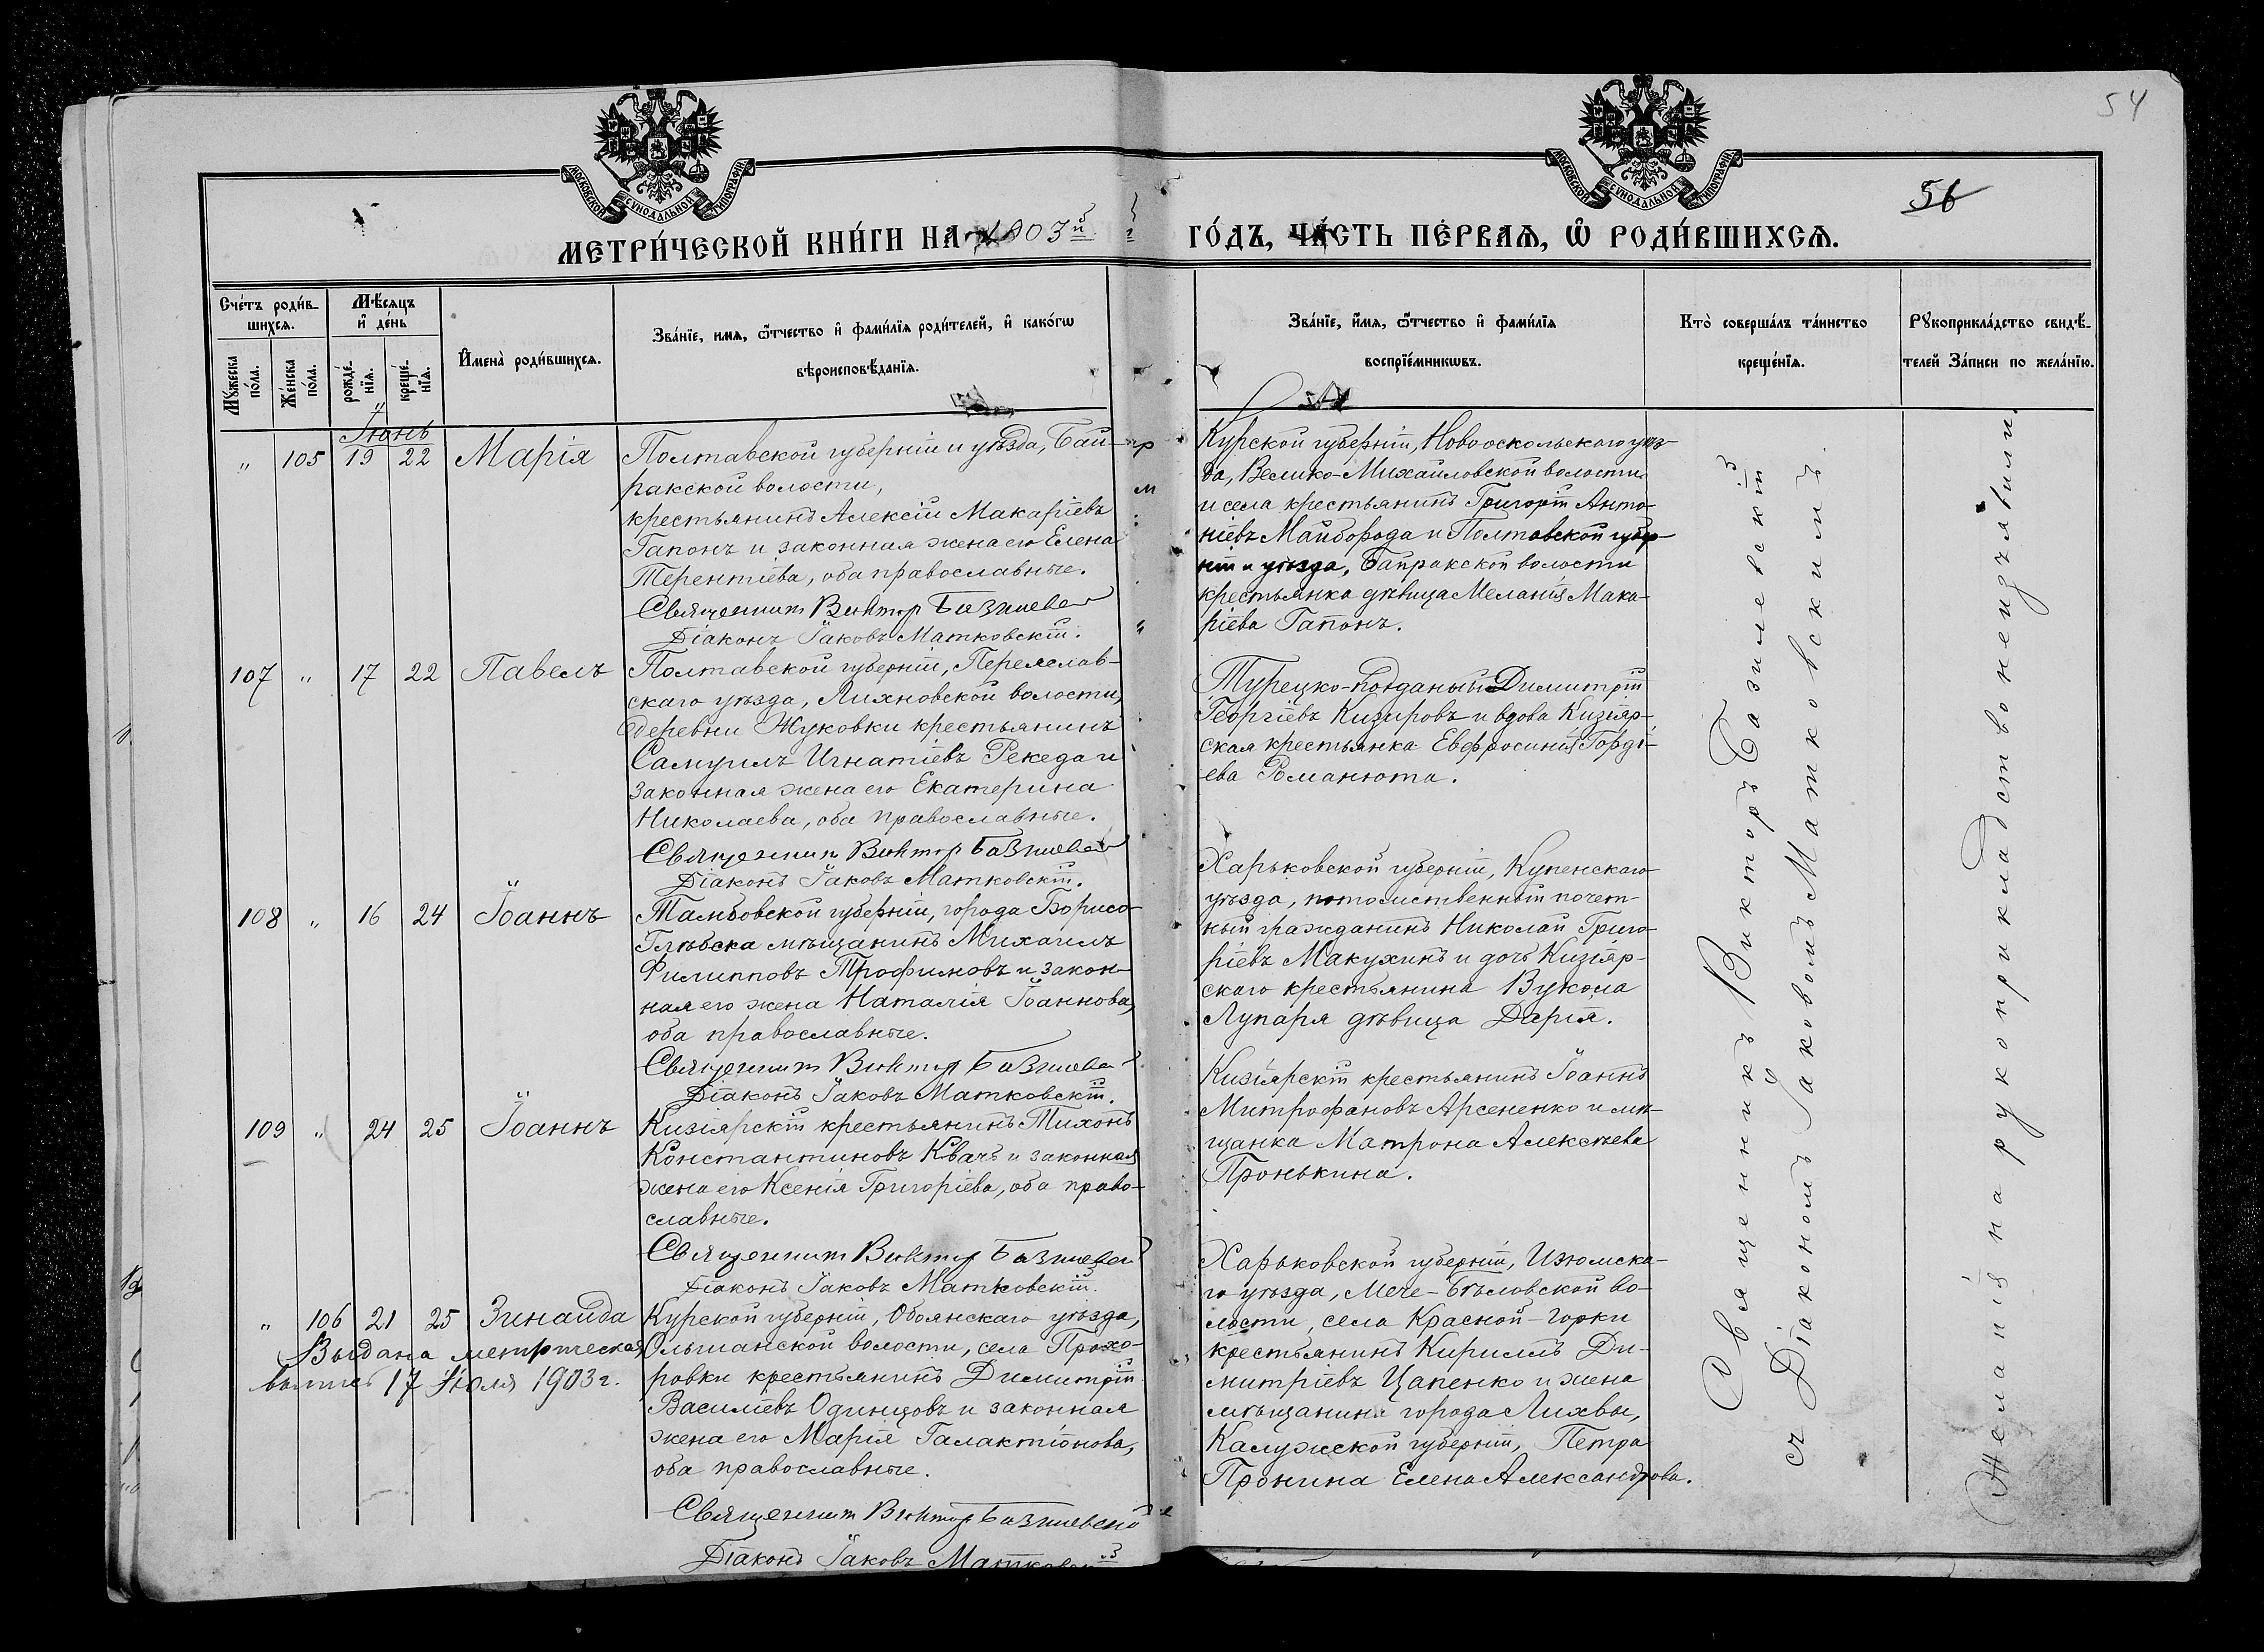 54
56
МОСКОВСКОЙ СѴНОДАЛЬНОЙ ТИПОГРАФІИ
МОСКОВСКОЙ СѴНОДАЛЬНОЙ ТИПОГРАФІИ
МЕТРИ́ЧЕСКОЙ КНИ́ГИ НА 1903й ГО́ДЪ, ЧА́СТЬ ПЕ́РВАѦ, Ѡ РОДИ́ВШИХСѦ.
Сче́тъ роди́в-
шихсѧ.
Мꙋ́жеска по́ла.
Же́нска по́ла.
Мѣ́сѧцъ
и҆ де́нь
рожде́-
нїѧ.
креще́-
нїѧ.
И҆мена̀ роди́вшихсѧ.
Зва́нїе, имѧ, ѻ҆́тчество и҆ фами́лїѧ роди́телей, и҆ како́гѡ
вѣроисповѣ́данїѧ.
Зва́нїе, и҆́мѧ, ѻ҆́тчество и҆ фами́лїѧ
воспрїе́мникѡвъ.
Кто̀ соверша́лъ та́инство
креще́нїѧ.
Рꙋкоприкла́дство свидѣ́-
телей За́писи по жела́нїю.
Іюнь
" 105 19 22 Марія
Полтавской губерніи и уѣзда, Бай-
ракской волости,
крестьянинъ Алексій Макаріевъ
Гапонъ и законная жена его Елена
Терентіева, оба православные.
Священникъ Викторъ Базилевск
Діаконъ Іаковъ Матковскій.
Курской губерніи, Новооскольскаго уѣз-
да, Велико-Михайловской волости
и села крестьянинъ Григорій Анто-
ніевъ Майборода и Полтавской губер-
ніи и уѣзда, Байракской волости
крестьянка дѣвица Меланія Мака-
ріева Гапонъ.
107 " 17 22 Павелъ
Полтавской губерніи, Переяслав-
скаго уѣзда, Лихновской волости,
деревни Жуковки крестьянинъ
Самуилъ Игнатіевъ Рекеда и
законная жена его Екатерина
Николаева, оба православные.
Священникъ Викторъ Базилевск
Діаконъ Іаковъ Матковскій.
Турецко-подданый Димитрій
Георгіевъ Кизировъ и вдова Кизіяр-
ская крестьянка Евфросинія Горді-
ева Романюта.
108 " 16 24 Іоаннъ
Тамбовской губерніи, города Борисо-
Глѣбска мѣщанинъ Михаилъ
Филипповъ Трофимовъ и закон-
ная его жена Наталія Іоаннова,
оба православные.
Священникъ Викторъ Базилевск
Діаконъ Іаковъ Матковскій.
Харьковской губерніи, Купенскаго
уѣзда, потомственный почет-
ный гражданинъ Николай Григо-
ріевъ Макухинъ и дочь Кизіяр-
скаго крестьянина Вукола
Лупаря дѣвица Дарія.
109 " 24 25 Іоаннъ
Кизіярскій крестьянинъ Тихонъ
Константиновъ Квачъ и законная
жена его Ксенія Григоріева, оба право-
славные.
Священникъ Викторъ Базилевск
Діаконъ Іаковъ Матковскій.
Кизіярскій крестьянинъ Іоаннъ
Митрофановъ Арсененко и мѣ-
щанка Матрона Алексѣева
Пронькина.
" 106 21 25 Зинаида
Выдана метрическая
выпись 17 Іюля 1903 г.
Курской губерніи, Обоянскаго уѣзда,
Ольшанской волости, села Прохо-
ровки крестьянинъ Димитрій
Василіевъ Одинцовъ и законная
жена его Марія Галактіонова,
оба православные.
Священникъ Викторъ Базилевскій
Діаконъ Іаковъ Матковскій
Харьковской губерніи, Изюмска-
го уѣзда, Мече-Бѣловской во-
лости, села Красной-Горки
крестьянинъ Кириллъ Ди-
митріевъ Цапенко и жена
мѣщанина города Лихвы,
Калужской губерніи, Петра
Пронина Елена Александрова.
Священникъ Викторъ Базилевскій
съ Діакономъ Іаковомъ Матковскимъ.
Желанія на рукоприкладство не изъявили.